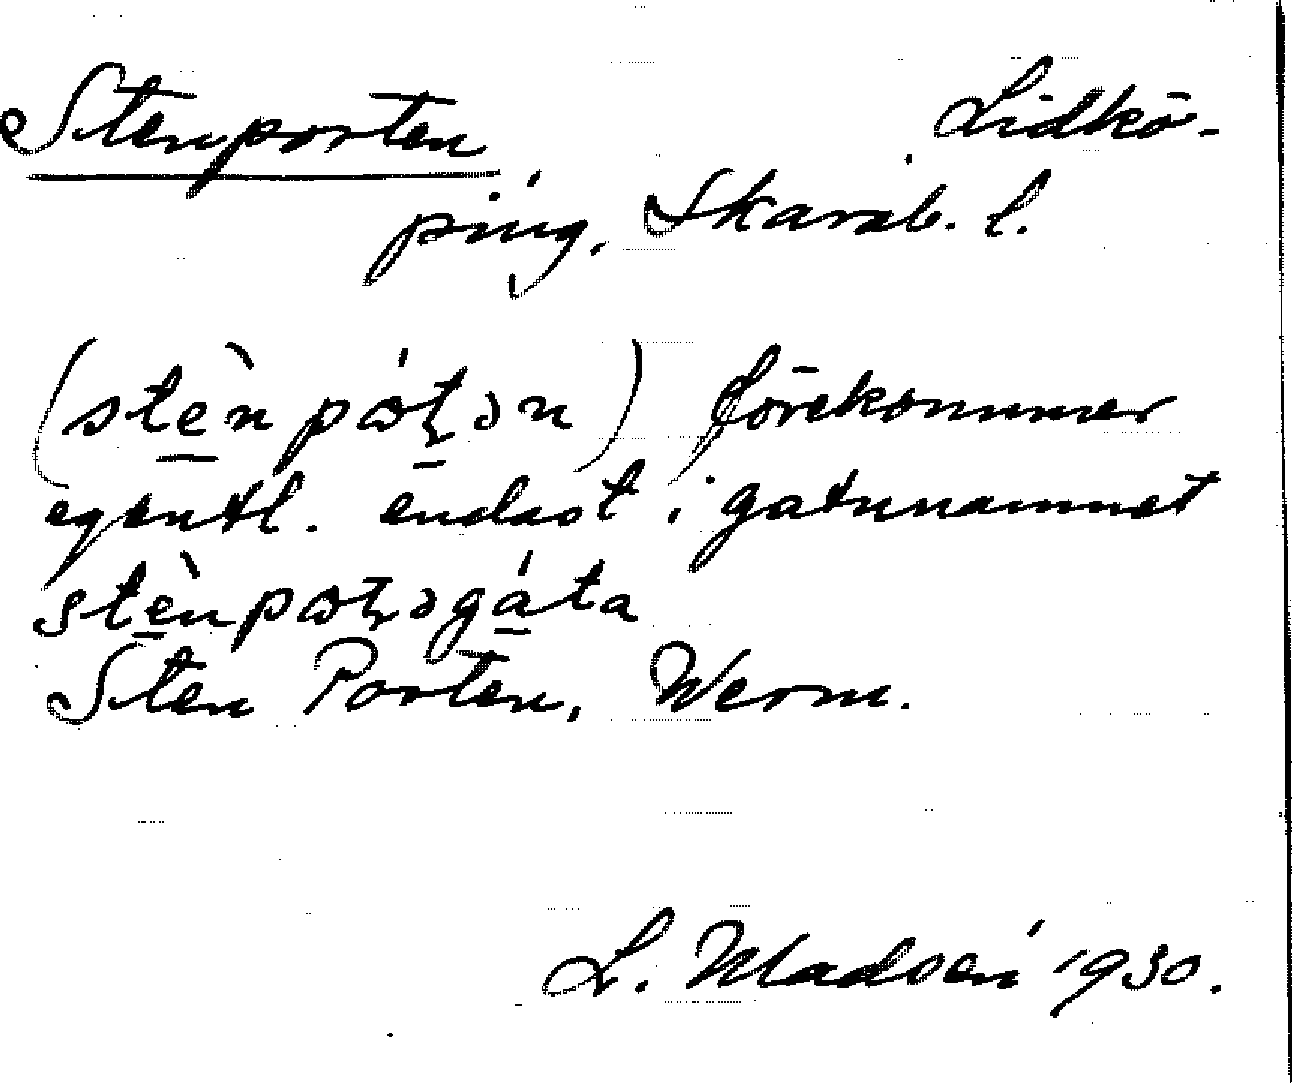 Stenporten Lidkö-
ping, Skarab. l.
(stèn pɷ́ʈən) förekommer
egentl. endast i gatunamnet
stènpɷʈəgáta
Sten Porten, Werm.
L. Madsén 1930.